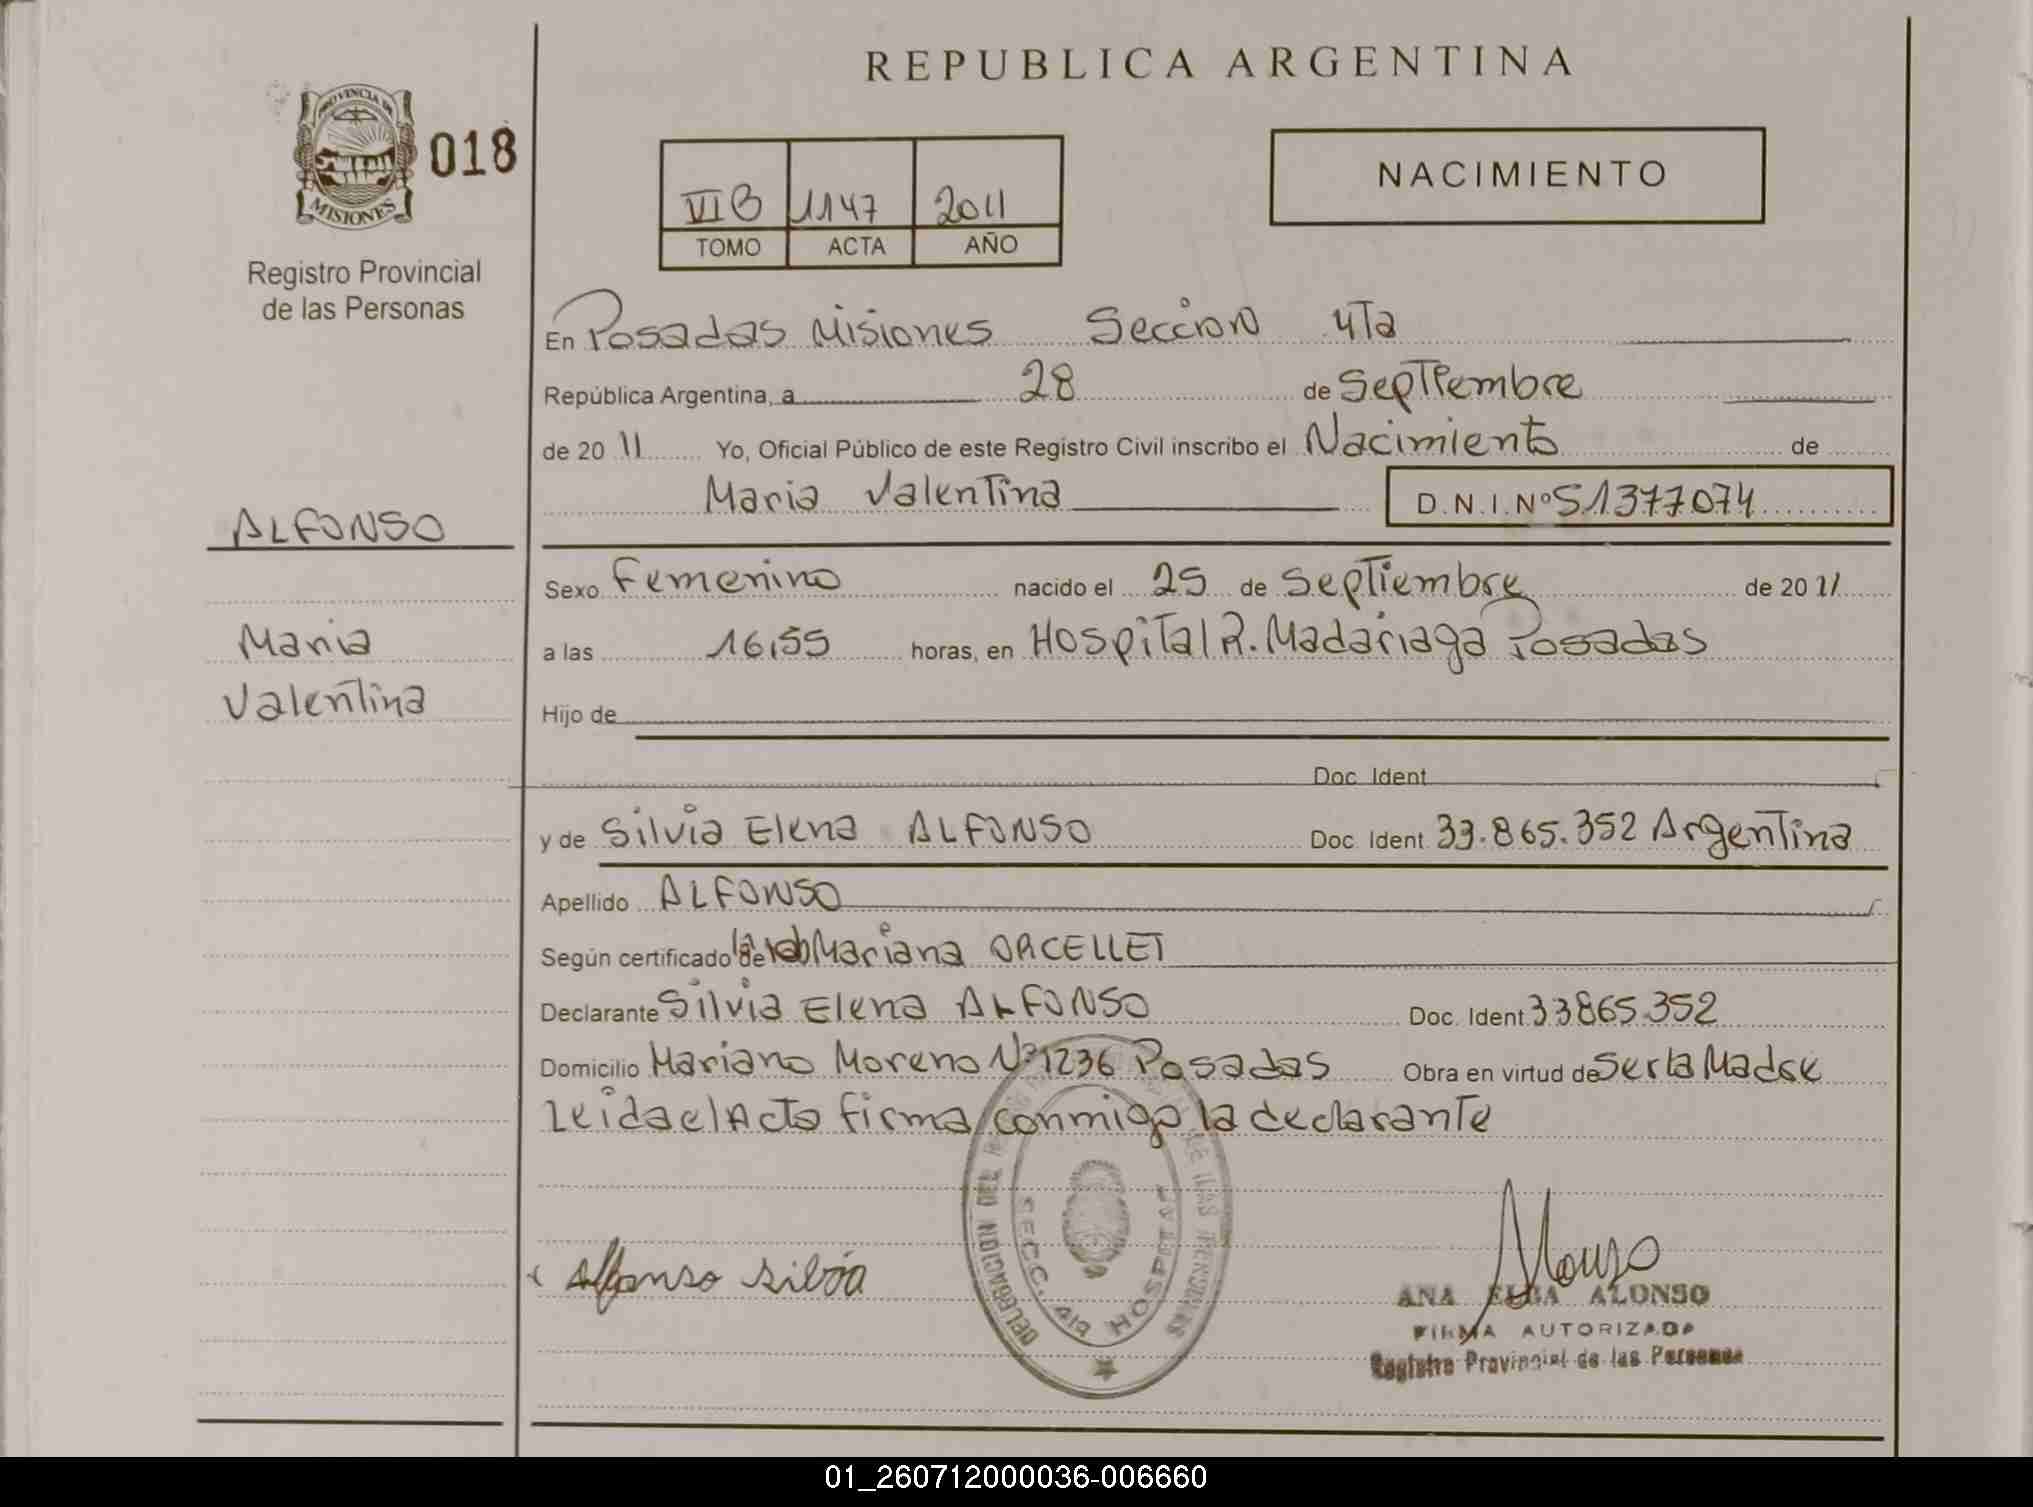 REPUBLICA ARGENTINA
PROVINCIA DE
MISIONES
018
Registro Provincial
de las Personas
VI B 1147 2011
TOMO ACTA AÑO
NACIMIENTO
En Posadas Misiones Seccion 4Ta
República Argentina, a 28 de Septiembre
de 20 11 Yo, Oficial Público de este Registro Civil inscribo el Nacimiento de
Maria Valentina D.N.I.Nº 51377074
ALFONSO
Maria
Valentina
Sexo Femenino nacido el 25 de Septiembre de 20 11
a las 16,55 horas, en Hospital R. Madariaga Posadas
Hijo de
Doc Ident
y de Silvia Elena ALFONSO Doc Ident 33.865.352 Argentina
Apellido ALFONSO
Según certificado de la Mariana ORCELLET
Declarante Silvia Elena ALFONSO Doc. Ident 33865.352
Domicilio Mariano Moreno Nº 1236 Posadas Obra en virtud de Ser la Madre
Leida el Acta firma conmigo la declarante
DELEGACION DEL
SECC. 4ta HOSPITAL
Alfonso Silvia
Alonso
ANA ELBA ALONSO
FIRMA AUTORIZADA
Registro Provincial de las Personas
01_260712000036-006660